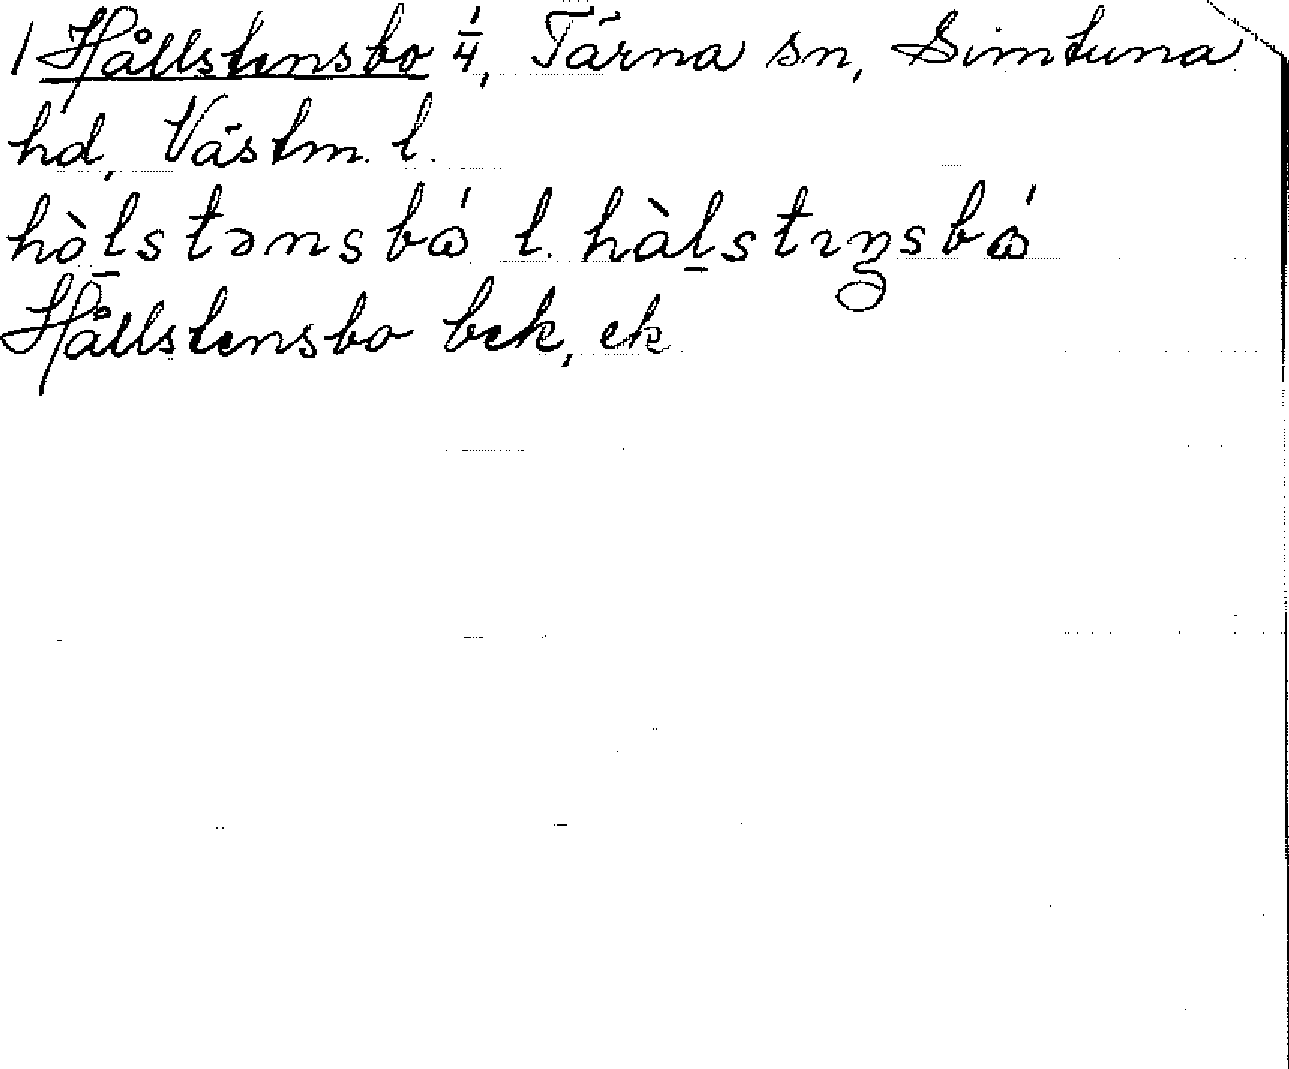 1 Hållstensbo 1/4, Tärna sn, Simtuna
hd, Västm. l.
hòl̲stənsbɷ́ l. hàl̲stɪn̥sbɷ́
Hållstensbo bek, ek